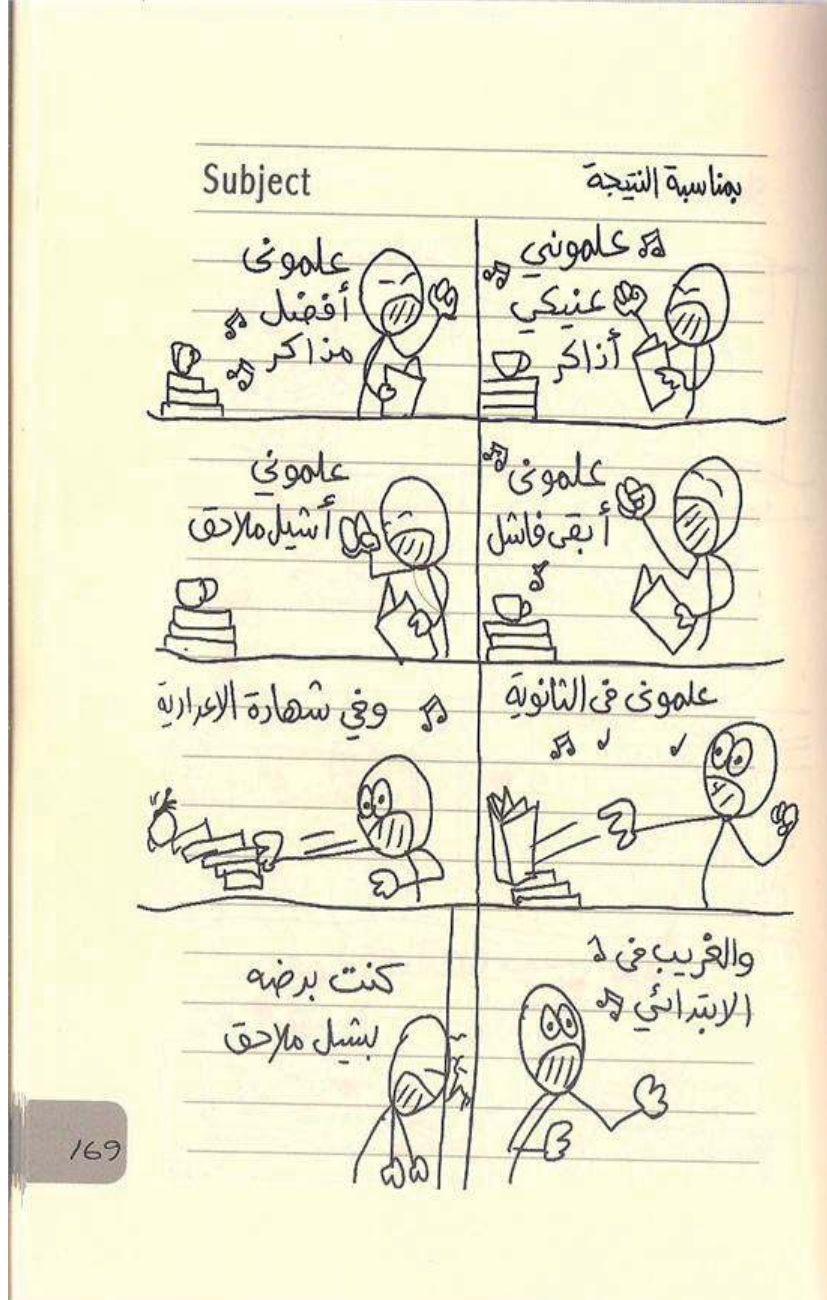 Subject
بمناسبة النتيجة
علموني
عنيكي
أذاكر
علمونى
أفضل
مذاكر
علمونى
أبقى فاشل
علموني
أشيل ملاحق
علمونى فى الثانوية
وفي شهادة الاعدادية
والغريب فى
الابتدائي
كنت برضه
بشيل ملاحق
169